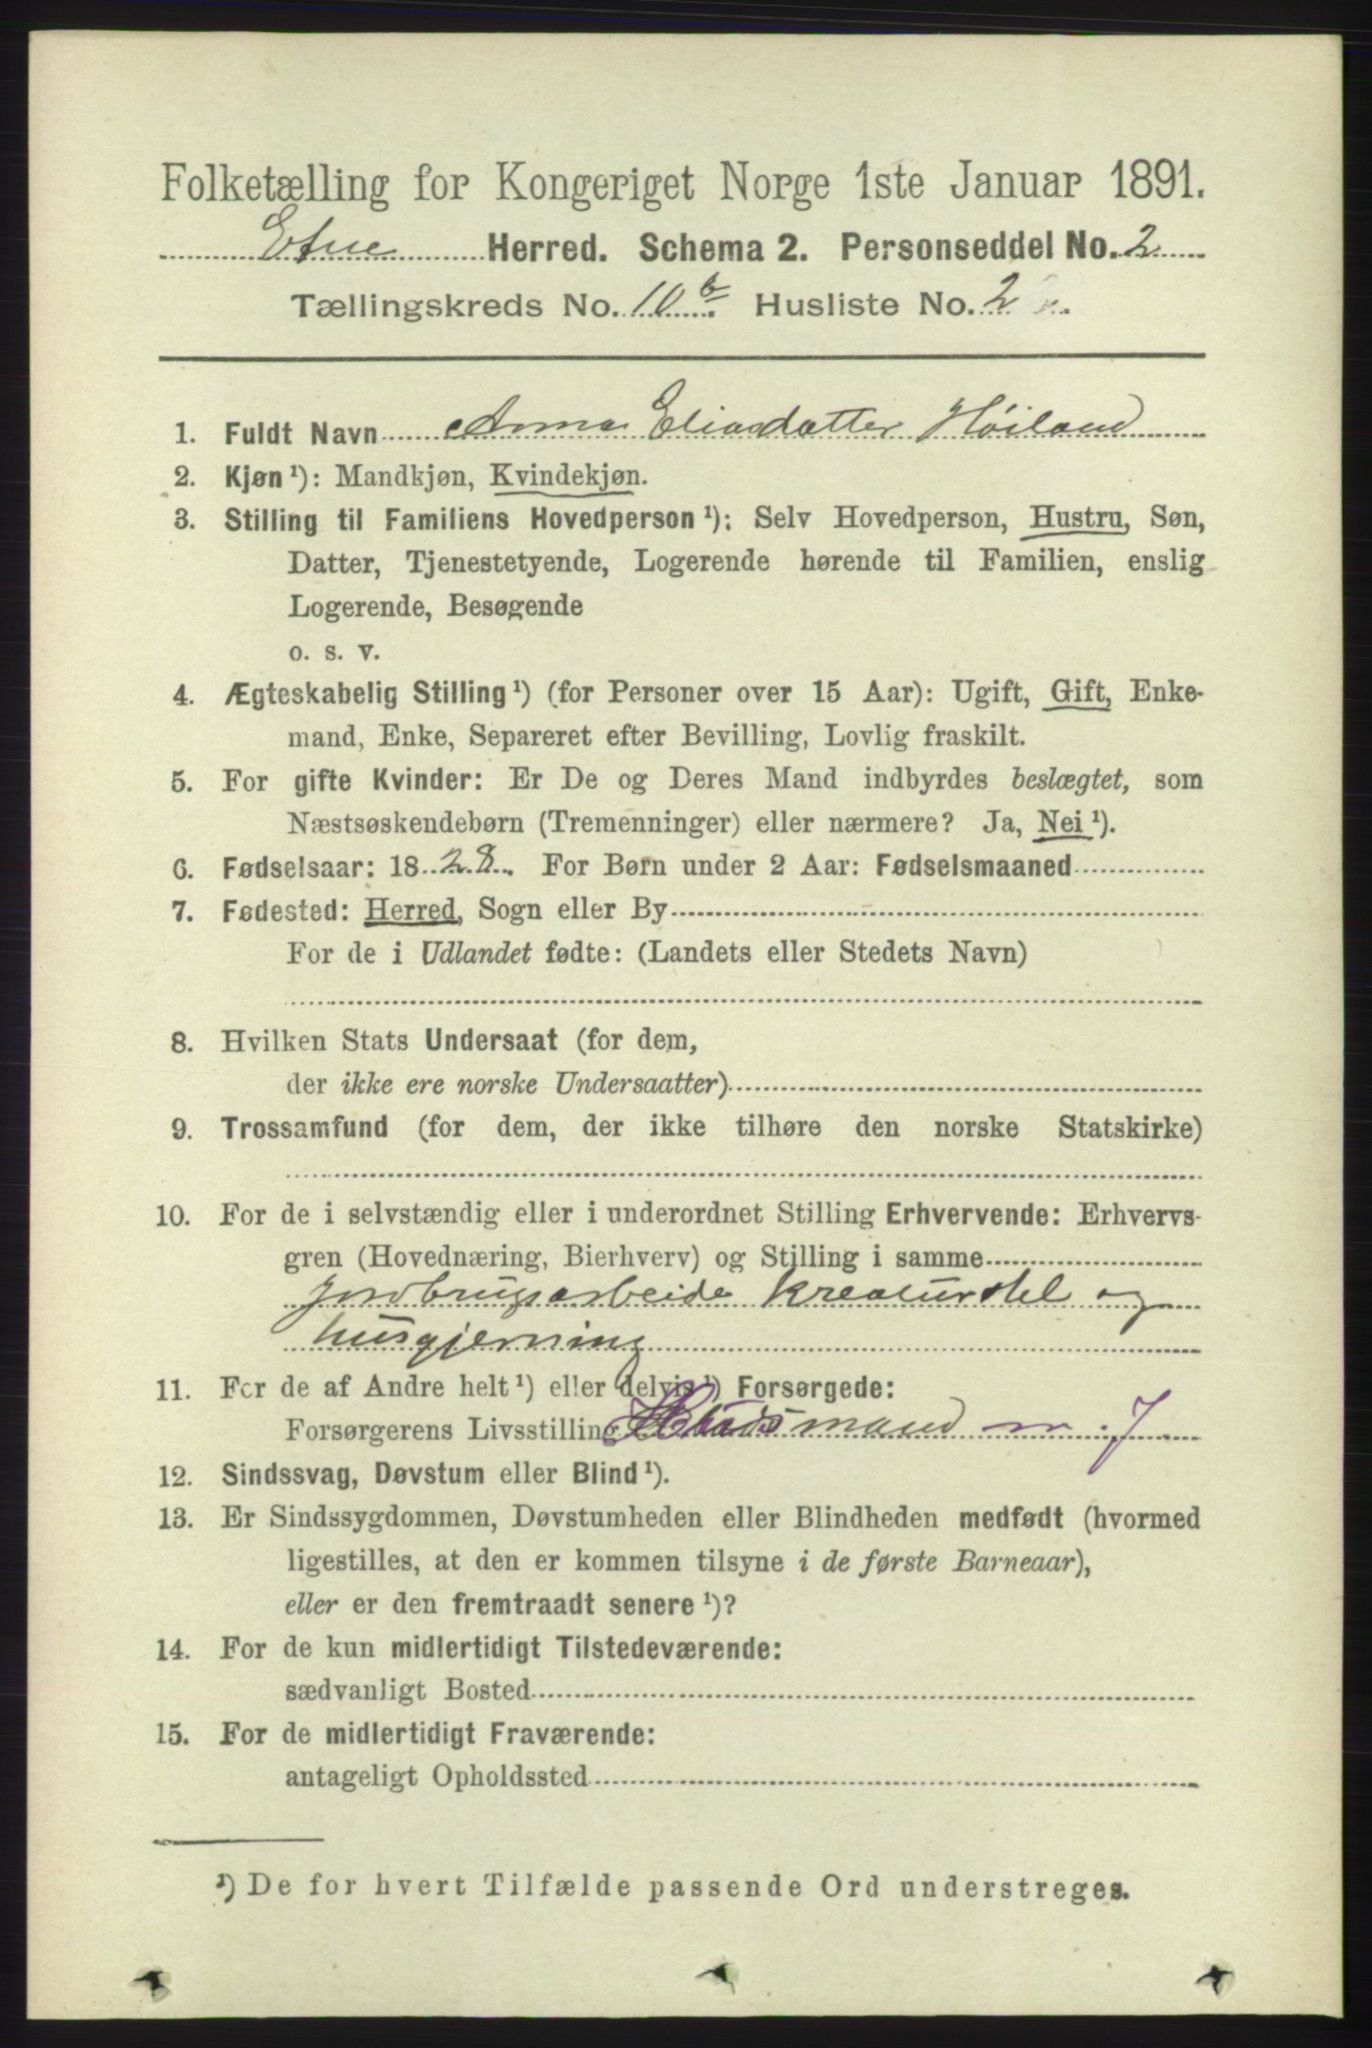 Folketælling for Kongeriget Norge 1ste Januar 1891.
Etne Herred. Schema 2. Personseddel No. 2
Tællingskreds No. 10 b. Husliste No. 2
1. Fuldt Navn Anna Eliasdatter Höiland
2. Kjøn ¹): Mandkjøn, Kvindekjøn.
3. Stilling til Familiens Hovedperson ¹): Selv Hovedperson, Hustru, Søn,
Datter, Tjenestetyende, Logerende hørende til Familien, enslig
Logerende, Besøgende
o. s. v.
4. Ægteskabelig Stilling ¹) (for Personer over 15 Aar): Ugift, Gift, Enke-
mand, Enke, Separeret efter Bevilling, Lovlig fraskilt.
5. For gifte Kvinder: Er De og Deres Mand indbyrdes beslægtet, som
Næstsøskendebørn (Tremenninger) eller nærmere? Ja, Nei ¹).
6. Fødselsaar: 1828. For Børn under 2 Aar: Fødselsmaaned
7. Fødested: Herred, Sogn eller By
For de i Udlandet fødte: (Landets eller Stedets Navn)
8. Hvilken Stats Undersaat (for dem,
der ikke ere norske Undersaatter)
9. Trossamfund (for dem, der ikke tilhøre den norske Statskirke)
10. For de i selvstændig eller i underordnet Stilling Erhvervende: Erhvervs-
gren (Hovednæring, Bierhverv) og Stilling i samme
Jordbrugsarbeide kreaturstel og
husgjerning
11. For de af Andre helt ¹) eller delvis ¹) Forsørgede:
Forsørgerens Livsstilling mand m. 7
12. Sindssvag, Døvstum eller Blind ¹).
13. Er Sindssygdommen, Døvstumheden eller Blindheden medfødt (hvormed
ligestilles, at den er kommen tilsyne i de første Barneaar),
eller er den fremtraadt senere ¹)?
14. For de kun midlertidigt Tilstedeværende:
sædvanligt Bosted
15. For de midlertidigt Fraværende:
antageligt Opholdssted
¹) De for hvert Tilfælde passende Ord understreges.